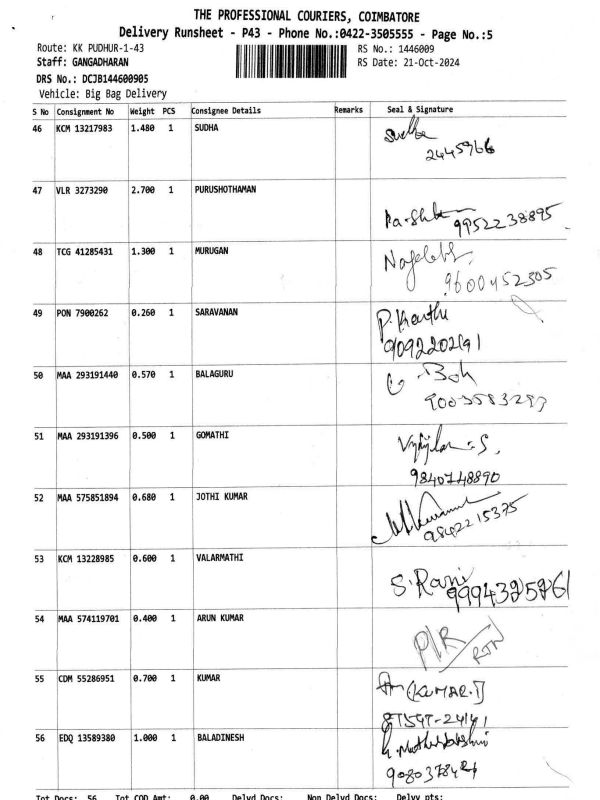 THE PROFESSIONAL COURIERS, COIMBATORE
Delivery Runsheet - P43 - Phone No.:0422-3505555 - Page No.:5
Route: KK PUDHUR-1-43 RS No.: 1446009
Staff: GANGADHARAN RS Date: 21-Oct-2024
DRS No.: DCJB144600905
Vehicle: Big Bag Delivery
S No Consignment No Weight PCS Consignee Details Remarks Seal & Signature
46 KCM 13217983 1.480 1 SUDHA Sudha
2445966
47 VLR 3273290 2.700 1 PURUSHOTHAMAN
9952238895
48 TCG 41285431 1.300 1 MURUGAN
9600452305
49 PON 7900262 0.260 1 SARAVANAN P. Karthi
9092202191
50 MAA 293191440 0.570 1 BALAGURU
9003583297
51 MAA 293191396 0.500 1 GOMATHI
9840748890
52 MAA 575851894 0.680 1 JOTHI KUMAR
9842215375
53 KCM 13228985 0.600 1 VALARMATHI
S. Rani 9994325261
54 MAA 574119701 0.400 1 ARUN KUMAR
P/R RTN
55 CDM 55286951 0.700 1 KUMAR
(KUMAR.T)
87547-24141
56 EDQ 13589380 1.000 1 BALADINESH
Tot Docs: 56 Tot COD Amt: 0.00 Delvd Docs: Non Delvd Docs: Delvy pts: